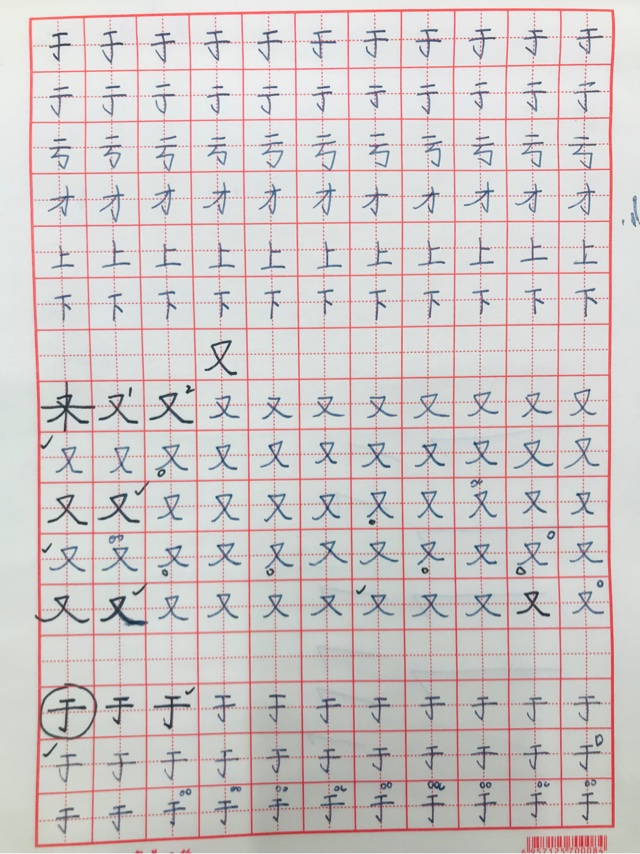 于于于于于于于于于于于
于于于于于于于于于于于
亏亏亏亏亏亏亏亏亏亏亏
才才才才才才才才才才才
上上上上上上上上上上上
下下下下下下下下下下下
又
又又1又2又又又又又又又又
又又又又又又又又又又又
又又又又又又又又又又又
又又又又又又又又又又又
又又又又又又又又又又又
于于于于于于于于于于于
于于于于于于于于于于于
于于于于于于于于于于于